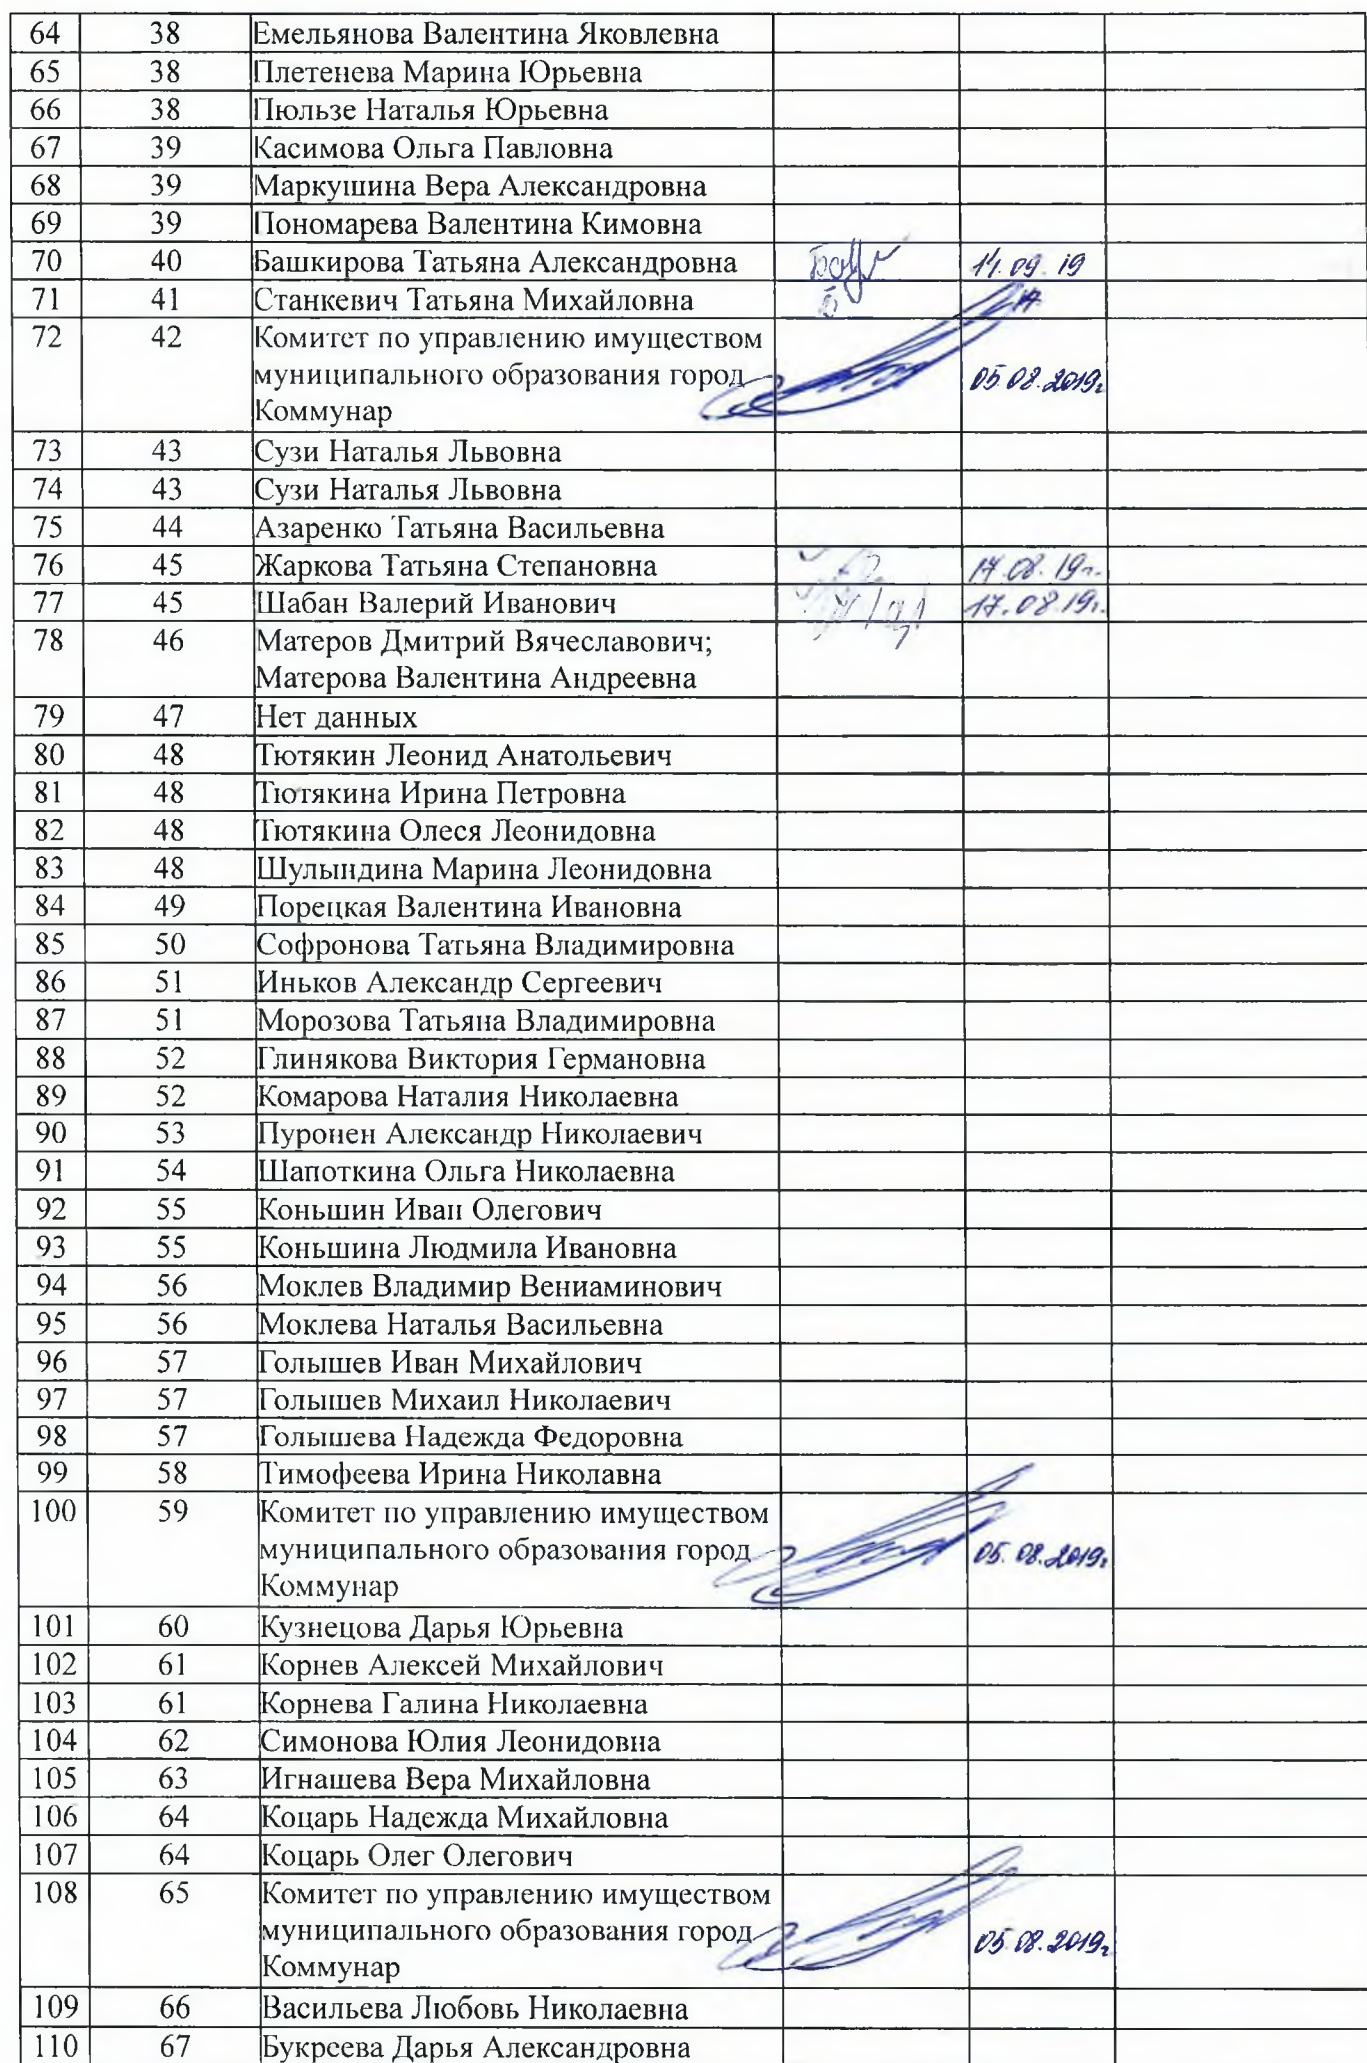 64 38 Емельянова Валентина Яковлевна
65 38 Плетенева Марина Юрьевна
66 38 Пюльзе Наталья Юрьевна
67 39 Касимова Ольга Павловна
68 39 Маркушина Вера Александровна
69 39 Пономарева Валентина Кимовна
70 40 Башкирова Татьяна Александровна 14.09.19
71 41 Станкевич Татьяна Михайловна
72 42 Комитет по управлению имуществом
муниципального образования город 05.08.2019г
Коммунар
73 43 Сузи Наталья Львовна
74 43 Сузи Наталья Львовна
75 44 Азаренко Татьяна Васильевна
76 45 Жаркова Татьяна Степановна 17.08.19г.
77 45 Шабан Валерий Иванович 17.08.19г.
78 46 Матеров Дмитрий Вячеславович;
Матерова Валентина Андреевна
79 47 Нет данных
80 48 Тютякин Леонид Анатольевич
81 48 Тютякина Ирина Петровна
82 48 Тютякина Олеся Леонидовна
83 48 Шулындина Марина Леонидовна
84 49 Порецкая Валентина Ивановна
85 50 Софронова Татьяна Владимировна
86 51 Иньков Александр Сергеевич
87 51 Морозова Татьяна Владимировна
88 52 Глинякова Виктория Германовна
89 52 Комарова Наталия Николаевна
90 53 Пуронен Александр Николаевич
91 54 Шапоткина Ольга Николаевна
92 55 Коньшин Иван Олегович
93 55 Коньшина Людмила Ивановна
94 56 Моклев Владимир Вениаминович
95 56 Моклева Наталья Васильевна
96 57 Голышев Иван Михайлович
97 57 Голышев Михаил Николаевич
98 57 Голышева Надежда Федоровна
99 58 Тимофеева Ирина Николавна
100 59 Комитет по управлению имуществом
муниципального образования город 05.08.2019г
Коммунар
101 60 Кузнецова Дарья Юрьевна
102 61 Корнев Алексей Михайлович
103 61 Корнева Галина Николаевна
104 62 Симонова Юлия Леонидовна
105 63 Игнашева Вера Михайловна
106 64 Коцарь Надежда Михайловна
107 64 Коцарь Олег Олегович
108 65 Комитет по управлению имуществом
муниципального образования город 05.08.2019г
Коммунар
109 66 Васильева Любовь Николаевна
110 67 Букреева Дарья Александровна